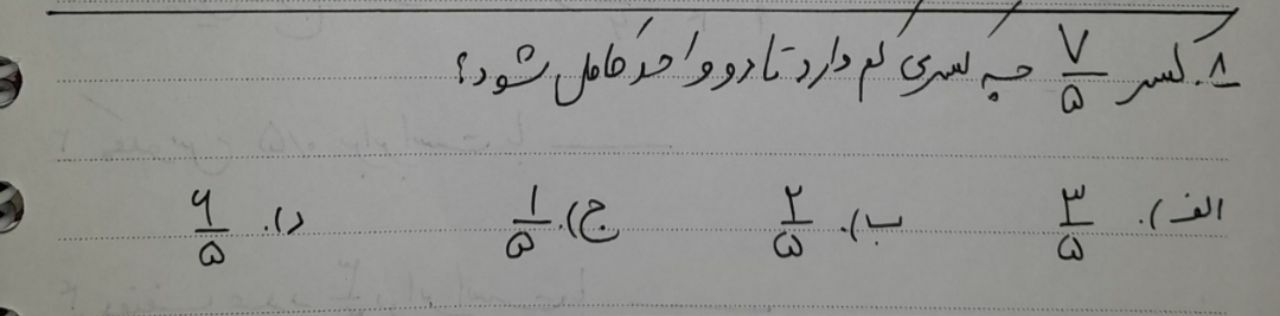 ۸. کسر ۷/۵ چه کسری کم دارد تا دو واحد کامل شود؟
الف). ۳/۵ ب). ۲/۵ ج). ۱/۵ د). ۶/۵